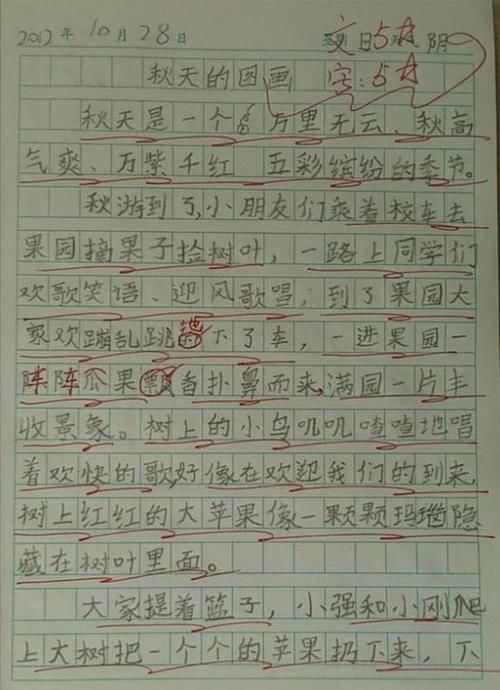 2012年10月28日 文日5才阴
秋天的图画 字:5才
秋天是一个万里无云、秋高
气爽、万紫千红 五彩缤纷的季节。
秋游到了,小朋友们乘着校车去
果园摘果子捡树叶,一路上同学们
欢歌笑语、迎风歌唱;到了果园大
家欢蹦乱跳地下了车,一进果园一
阵阵瓜果香扑鼻而来,满园一片丰
收景象。树上的小鸟叽叽喳喳地唱
着欢快的歌,好像在欢迎我们的到来,
树上红红的大苹果像一颗颗玛瑙隐
藏在树叶里面。
大家提着篮子,小强和小刚爬
上大树把一个个的苹果扔下来,下